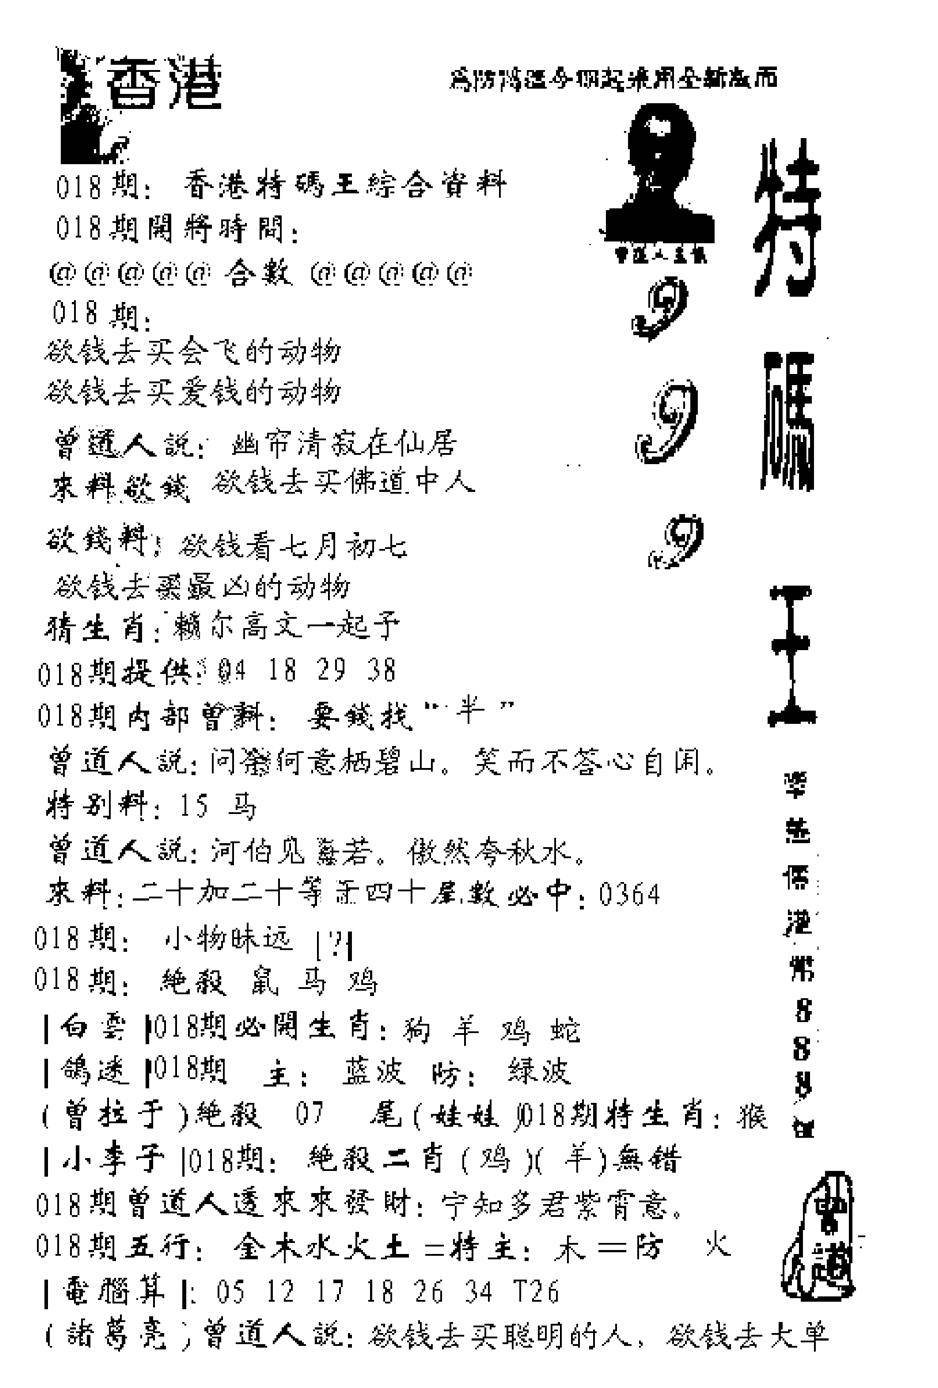 香港
018期：香港特碼王綜合資料
018期開將時間：
@@@@@合數@@@@@
018期：
欲钱去买会飞的动物
欲钱去买爱钱的动物
曾道人説：幽帘清寂在仙居
來料欲錢 欲钱去买佛道中人
欲錢料：欲钱看七月初七
欲钱去买最凶的动物
猜生肖：赖尔高文一起予
018期提供：04 18 29 38
018期内部曾料：要錢找“半”
曾道人説：问余何意栖碧山。笑而不答心自闲。
特别料：15 马
曾道人説：河伯见海若。傲然夸秋水。
來料：二十加二十等于四十尾數必中：0364
018期：小物昧远 |?|
018期：絶殺 鼠 马 鸡
|白雲|018期必開生肖：狗 羊 鸡 蛇
|鴿迷|018期 主：蓝波 防：绿波
(曾拉于)絶殺 07 尾(娃娃)018期特生肖：猴
|小李子|018期：絶殺二肖(鸡)(羊)無错
018期曾道人透來來發財：宁知多君紫霄意。
018期五行：金木水火土=特主：木=防 火
|電腦算|：05 12 17 18 26 34 T26
(諸葛亮)曾道人説：欲钱去买聪明的人，欲钱去大单
特碼王
999
888
曾道